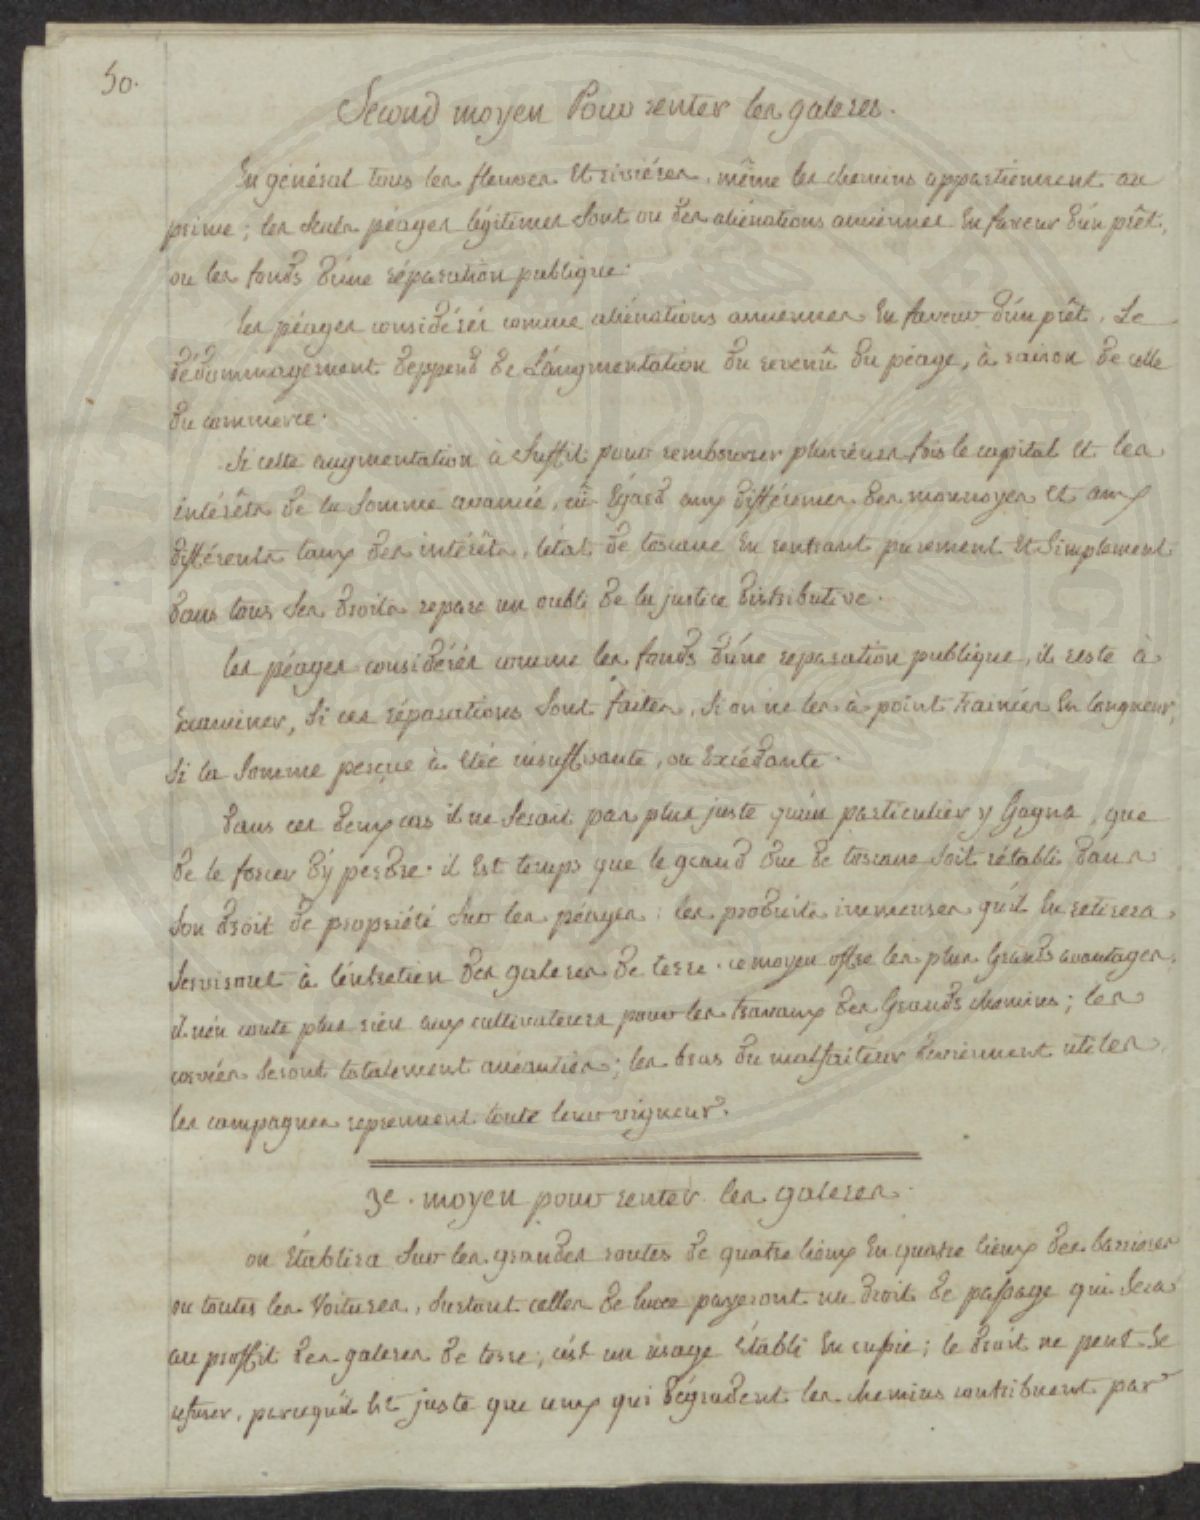 50.
Second moyen Pour renter les galeres.
En général tous les fleuves Et riviéres, même les chemins appartiennent au
prince; les seuls péages légitimes sont ou des aliénations anciennes En faveur d'un prêt,
ou les fonds d'une réparation publique.
les péages considérés comme aliénations anciennes En faveur d'un prêt. Le
dédommagement deppend de L'augmentation du revenû du péage, à raison de celle
du commerce.
Si cette augmentation à suffit pour rembourser plusieurs fois le capital Et les
intérêts de la somme avancée, eû Egard aux différences des monnoyes Et aux
différents taux des intérêts, l'état de toscane En rentrant purement Et simplement
dans tous ses droits repare un oubli de la justice distributive.
les péages considérés comme les fonds d'une reparation publique, il reste à
Examiner, si ces réparations sont faites, si on ne les à point trainées En longueur,
si la somme perçue à Etée insuffisante, ou Excédante.
dans ces deux cas il ne serait pas plus juste qu'un particulier y Gagna, que
de le forcer d'y perdre. il Est temps que le grand duc de toscane soit rétabli dans
son droit de propriété sur les péages: les produits immenses qu'il En retirera
serviront à l'entretien des galeres de terre. ce moyen offre les plus Grands avantages.
il n'en coute plus rien aux cultivateurs pour les travaux des Grands chemins; les
corvées seront totalement anéanties; les bras du malfaiteur deviennent utiles
les campagnes reprennent toute leur vigueur.
3e. moyen pour renter les galeres.
on Etablira sur les grandes routes de quatre lieux En quatre lieux des barrieres
ou toutes les Voitures, surtout celles de luxe payeront un droit de passage qui sera
au proffit des galeres de terre; c'est un usage Etabli En russie; le droit ne peut se
refuser, parcequ'il Est juste que ceux qui dégradent les chemins contribuent par